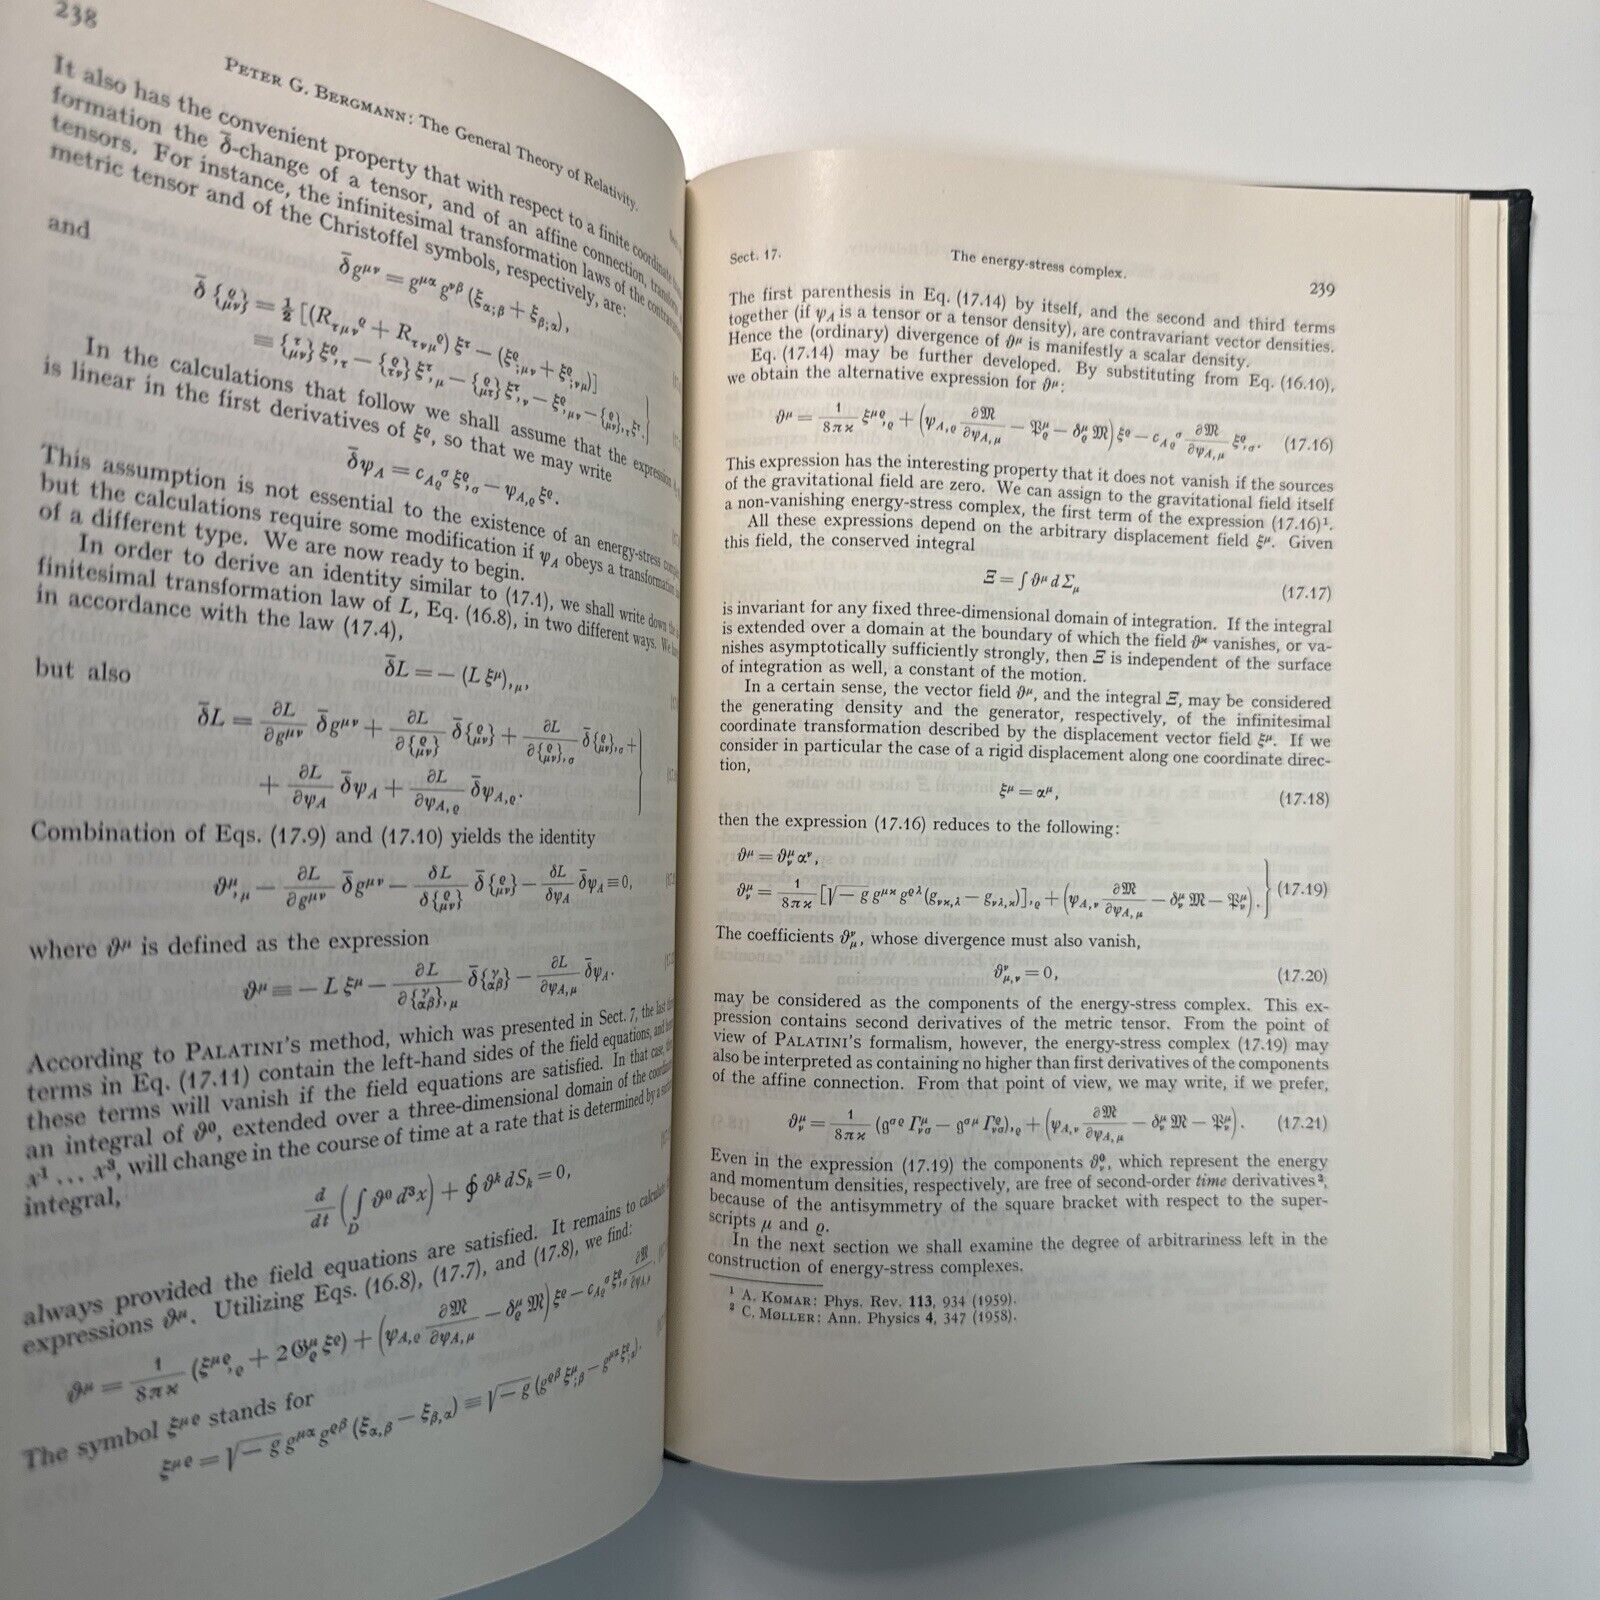 238
PETER G. BERGMANN: The General Theory of Relativity.
It also has the convenient property that with respect to a finite coordinate
formation the δ̄-change of a tensor, and of an affine connection, transform
tensors. For instance, the infinitesimal transformation laws of the contravariant
metric tensor and of the Christoffel symbols, respectively, are:
δ̄g^{μν} = g^{μα} g^{νβ} (ξ_{α;β} + ξ_{β;α}),
and
δ̄ {^ϱ_{μν}} = ½ [(R_{τμν}^ϱ + R_{τνμ}^ϱ) ξ^τ − (ξ^ϱ_{;μν} + ξ^ϱ_{;νμ})]
≡ {^τ_{μν}} ξ^ϱ_{,τ} − {^ϱ_{τν}} ξ^τ_{,μ} − {^ϱ_{μτ}} ξ^τ_{,ν} − ξ^ϱ_{,μν} − {^ϱ_{μν}}_{,τ} ξ^τ.
In the calculations that follow we shall assume that the expression
is linear in the first derivatives of ξ^ϱ, so that we may write
δ̄ψ_A = c_{Aϱ}^σ ξ^ϱ_{,σ} − ψ_{A,ϱ} ξ^ϱ.
This assumption is not essential to the existence of an energy-stress
but the calculations require some modification if ψ_A obeys a transformation
of a different type. We are now ready to begin.
In order to derive an identity similar to (17.1), we shall write down the
finitesimal transformation law of L, Eq. (16.8), in two different ways. We
in accordance with the law (17.4),
δ̄L = − (L ξ^μ)_{,μ},
but also
δ̄L = ∂L/∂g^{μν} δ̄g^{μν} + ∂L/∂{^ϱ_{μν}} δ̄{^ϱ_{μν}} + ∂L/∂{^ϱ_{μν}}_{,σ} δ̄{^ϱ_{μν}}_{,σ} +
+ ∂L/∂ψ_A δ̄ψ_A + ∂L/∂ψ_{A,ϱ} δ̄ψ_{A,ϱ}.
Combination of Eqs. (17.9) and (17.10) yields the identity
ϑ^μ_{,μ} − ∂L/∂g^{μν} δ̄g^{μν} − δL/δ{^ϱ_{μν}} δ̄{^ϱ_{μν}} − δL/δψ_A δ̄ψ_A ≡ 0,
where ϑ^μ is defined as the expression
ϑ^μ ≡ − L ξ^μ − ∂L/∂{^γ_{αβ}}_{,μ} δ̄{^γ_{αβ}} − ∂L/∂ψ_{A,μ} δ̄ψ_A.
According to PALATINI's method, which was presented in Sect. 7, the last
terms in Eq. (17.11) contain the left-hand sides of the field equations, and
these terms will vanish if the field equations are satisfied. In that case,
an integral of ϑ^0, extended over a three-dimensional domain of the
x^1 ... x^3, will change in the course of time at a rate that is determined by a
integral,
d/dt (∫_D ϑ^0 d^3x) + ∮ ϑ^k dS_k = 0,
always provided the field equations are satisfied. It remains to calculate
expressions ϑ^μ. Utilizing Eqs. (16.8), (17.7), and (17.8), we find:
ϑ^μ = 1/8πϰ (ξ^{μϱ}_{,ϱ} + 2𝔊^μ_ϱ ξ^ϱ) + (ψ_{A,ϱ} ∂𝔐/∂ψ_{A,μ} − δ^μ_ϱ 𝔐) ξ^ϱ − c_{Aϱ}^σ ξ^ϱ_{,σ} ∂𝔐/∂ψ_{A,μ}
The symbol ξ^{μϱ} stands for
ξ^{μϱ} = √−g g^{μα} g^{ϱβ} (ξ_{α,β} − ξ_{β,α}) ≡ √−g (g^{ϱβ} ξ^μ_{;β} − g^{μα} ξ^ϱ_{;α}).
Sect. 17.
The energy-stress complex.
239
The first parenthesis in Eq. (17.14) by itself, and the second and third terms
together (if ψ_A is a tensor or a tensor density), are contravariant vector densities.
Hence the (ordinary) divergence of ϑ^μ is manifestly a scalar density.
Eq. (17.14) may be further developed. By substituting from Eq. (16.10),
we obtain the alternative expression for ϑ^μ:
ϑ^μ = 1/8πϰ ξ^{μϱ}_{,ϱ} + (ψ_{A,ϱ} ∂𝔐/∂ψ_{A,μ} − 𝔓^μ_ϱ − δ^μ_ϱ 𝔐) ξ^ϱ − c_{Aϱ}^σ ∂𝔐/∂ψ_{A,μ} ξ^ϱ_{,σ}. (17.16)
This expression has the interesting property that it does not vanish if the sources
of the gravitational field are zero. We can assign to the gravitational field itself
a non-vanishing energy-stress complex, the first term of the expression (17.16)¹.
All these expressions depend on the arbitrary displacement field ξ^μ. Given
this field, the conserved integral
Ξ = ∫ ϑ^μ d Σ_μ (17.17)
is invariant for any fixed three-dimensional domain of integration. If the integral
is extended over a domain at the boundary of which the field ϑ^ϰ vanishes, or va-
nishes asymptotically sufficiently strongly, then Ξ is independent of the surface
of integration as well, a constant of the motion.
In a certain sense, the vector field ϑ^μ, and the integral Ξ, may be considered
the generating density and the generator, respectively, of the infinitesimal
coordinate transformation described by the displacement vector field ξ^μ. If we
consider in particular the case of a rigid displacement along one coordinate direc-
tion,
ξ^μ = α^μ, (17.18)
then the expression (17.16) reduces to the following:
ϑ^μ = ϑ^μ_ν α^ν,
ϑ^μ_ν = 1/8πϰ [√−g g^{μϰ} g^{ϱλ} (g_{νϰ,λ} − g_{νλ,ϰ})]_{,ϱ} + (ψ_{A,ν} ∂𝔐/∂ψ_{A,μ} − δ^μ_ν 𝔐 − 𝔓^μ_ν). (17.19)
The coefficients ϑ^ν_μ, whose divergence must also vanish,
ϑ^ν_{μ,ν} = 0, (17.20)
may be considered as the components of the energy-stress complex. This ex-
pression contains second derivatives of the metric tensor. From the point of
view of PALATINI's formalism, however, the energy-stress complex (17.19) may
also be interpreted as containing no higher than first derivatives of the components
of the affine connection. From that point of view, we may write, if we prefer,
ϑ^μ_ν = 1/8πϰ (𝔤^{σϱ} Γ^μ_{νσ} − 𝔤^{σμ} Γ^ϱ_{νσ})_{,ϱ} + (ψ_{A,ν} ∂𝔐/∂ψ_{A,μ} − δ^μ_ν 𝔐 − 𝔓^μ_ν). (17.21)
Even in the expression (17.19) the components ϑ^0_ν, which represent the energy
and momentum densities, respectively, are free of second-order time derivatives²,
because of the antisymmetry of the square bracket with respect to the super-
scripts μ and ϱ.
In the next section we shall examine the degree of arbitrariness left in the
construction of energy-stress complexes.
¹ A. KOMAR: Phys. Rev. 113, 934 (1959).
² C. MØLLER: Ann. Physics 4, 347 (1958).